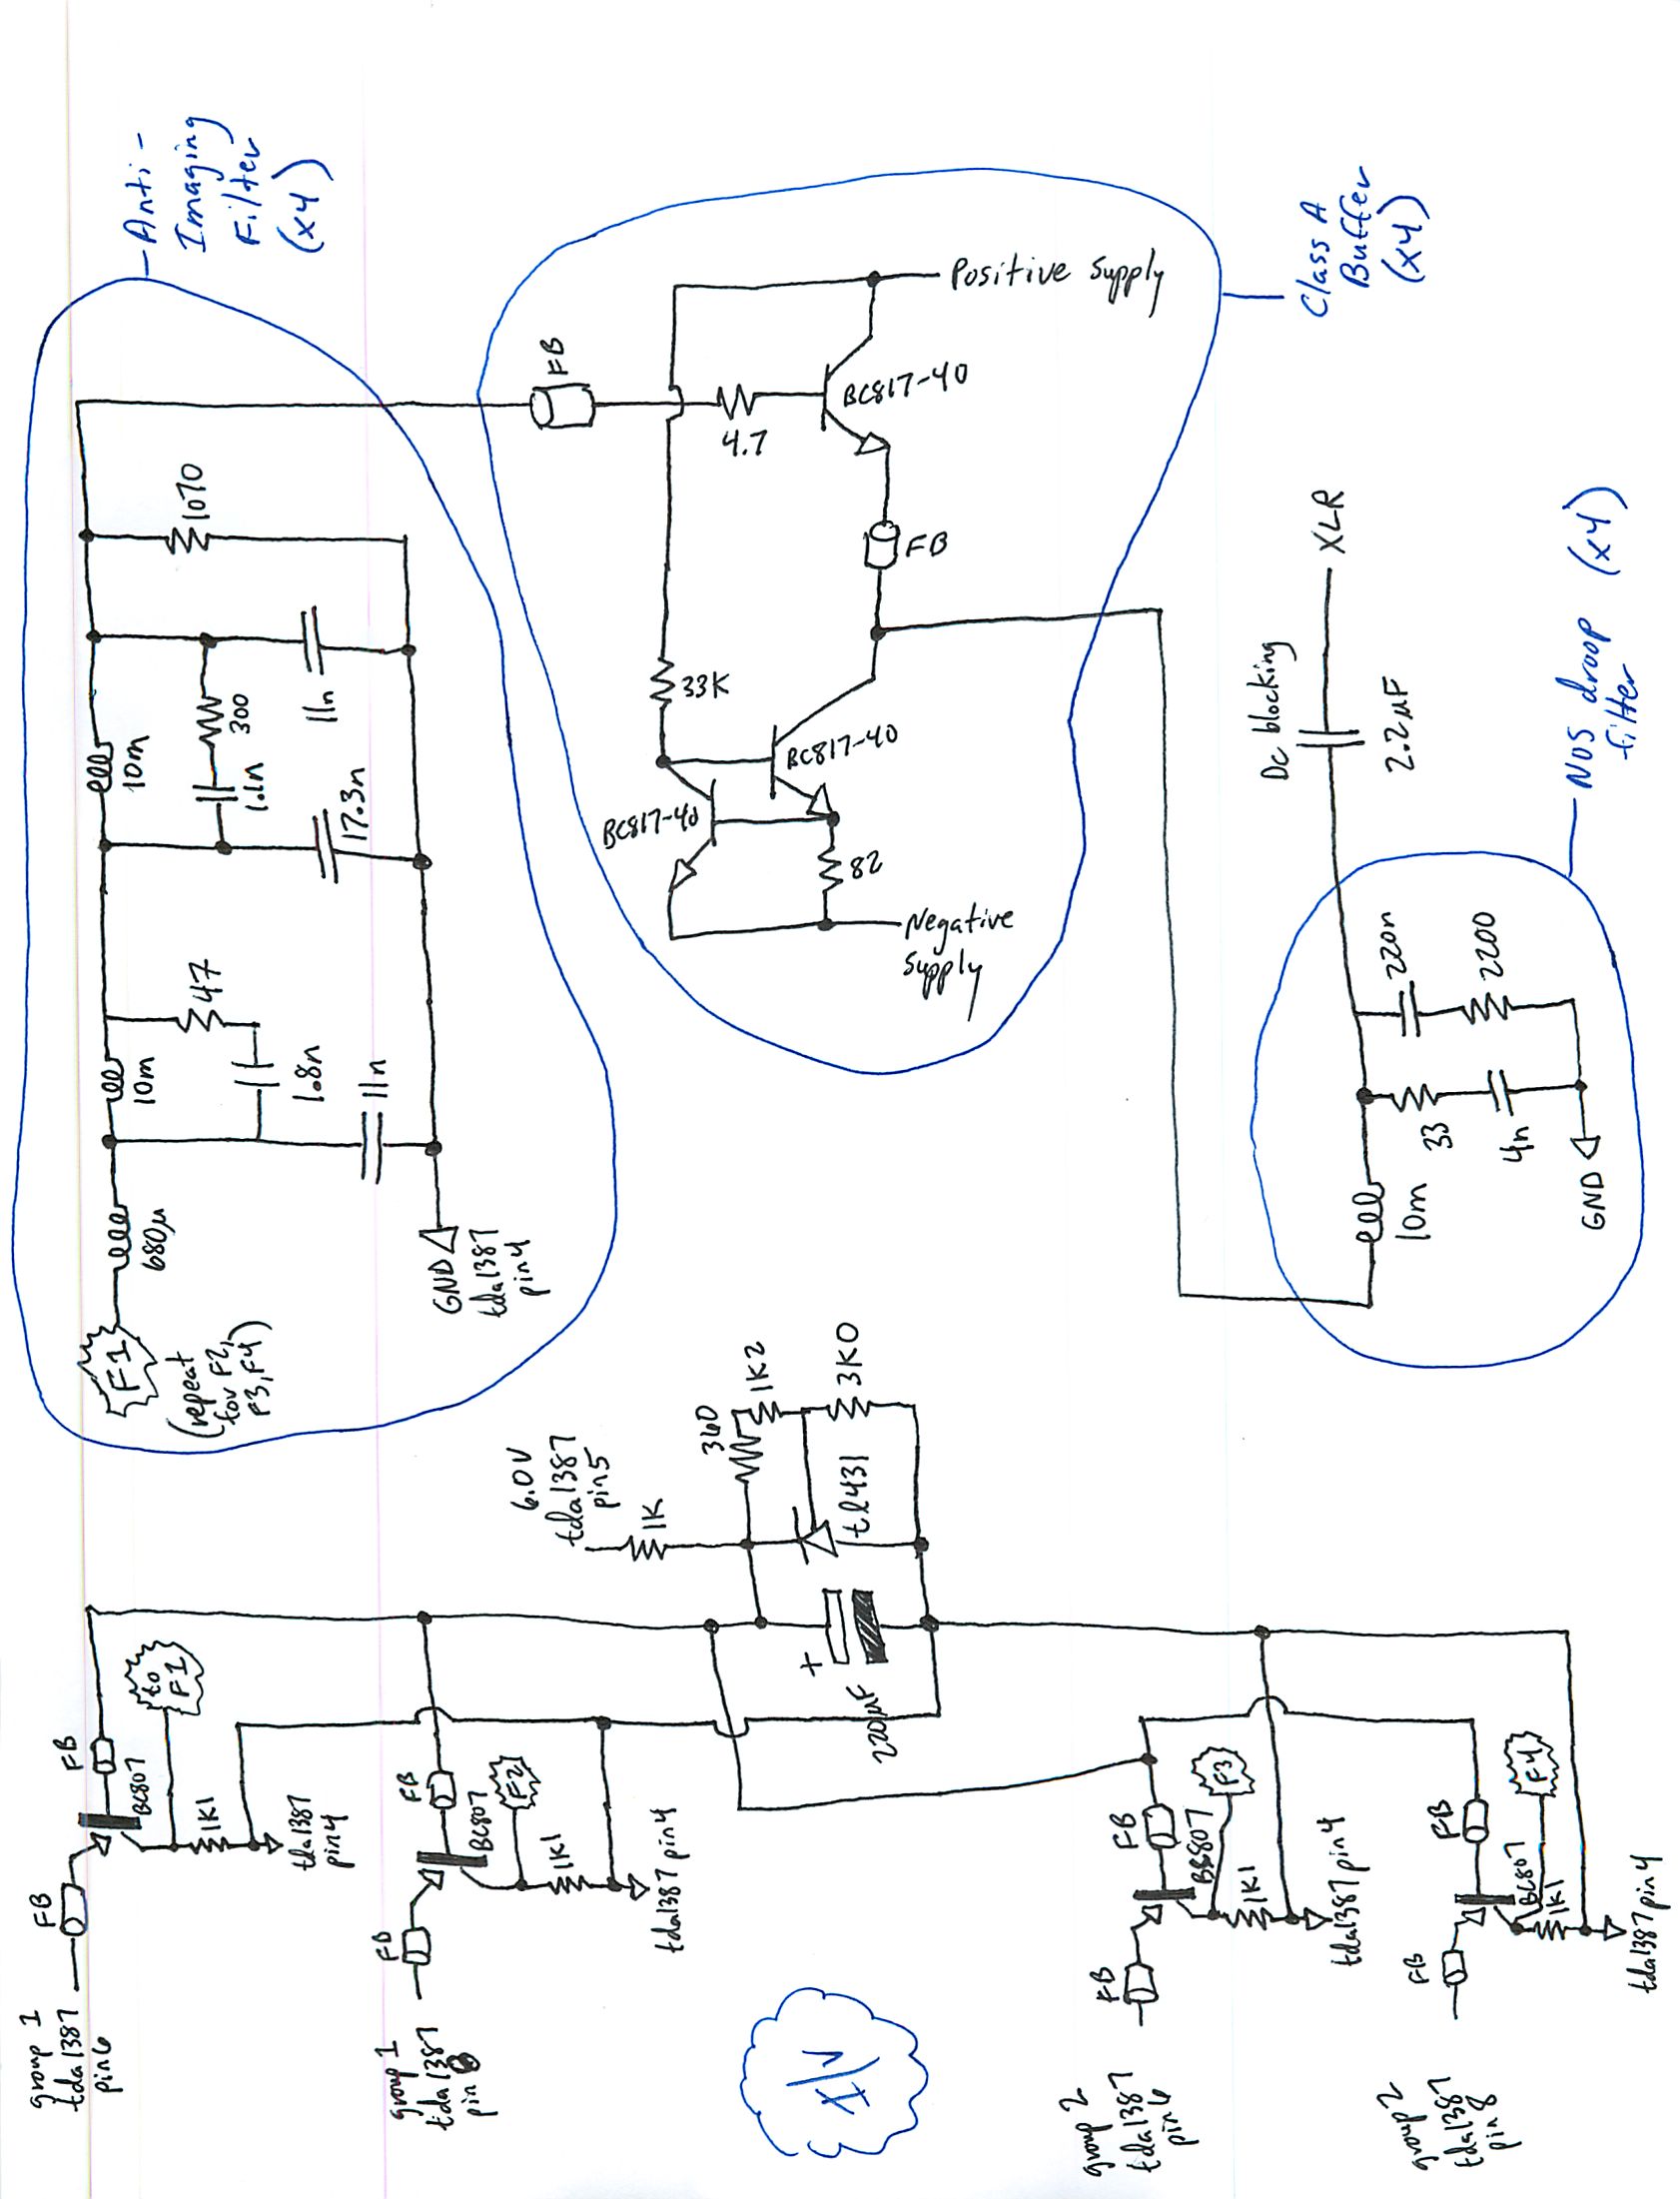 group 1
tda1387
pin6
FB
FB
BC807
to
F1
1K1
tda1387
pin4
group 1
tda1387
pin 8
FB
FB
BC807
F2
1K1
tda1387 pin4
6.0V
tda1387
pin5
1K
360
1K2
3K0
tl431
+
220µF
group 2
tda1387
pin6
FB
FB
BC807
F3
1K1
tda1387 pin4
group 2
tda1387
pin 8
FB
FB
BC807
F4
1K1
tda1387 pin4
F1
(repeat
for F2,
F3, F4)
680µ
10m
47
1.8n
11n
10m
1.1n
300
17.3n
11n
1070
GND
tda1387
pin4
Anti-
Imaging
Filter
(x4)
FB
4.7
BC817-40
Positive Supply
FB
33K
BC817-40
BC817-40
82
Negative
Supply
Class A
Buffer
(x4)
10m
33
4n
220n
2200
GND
DC blocking
2.2µF
XLR
NOS droop (x4)
filter